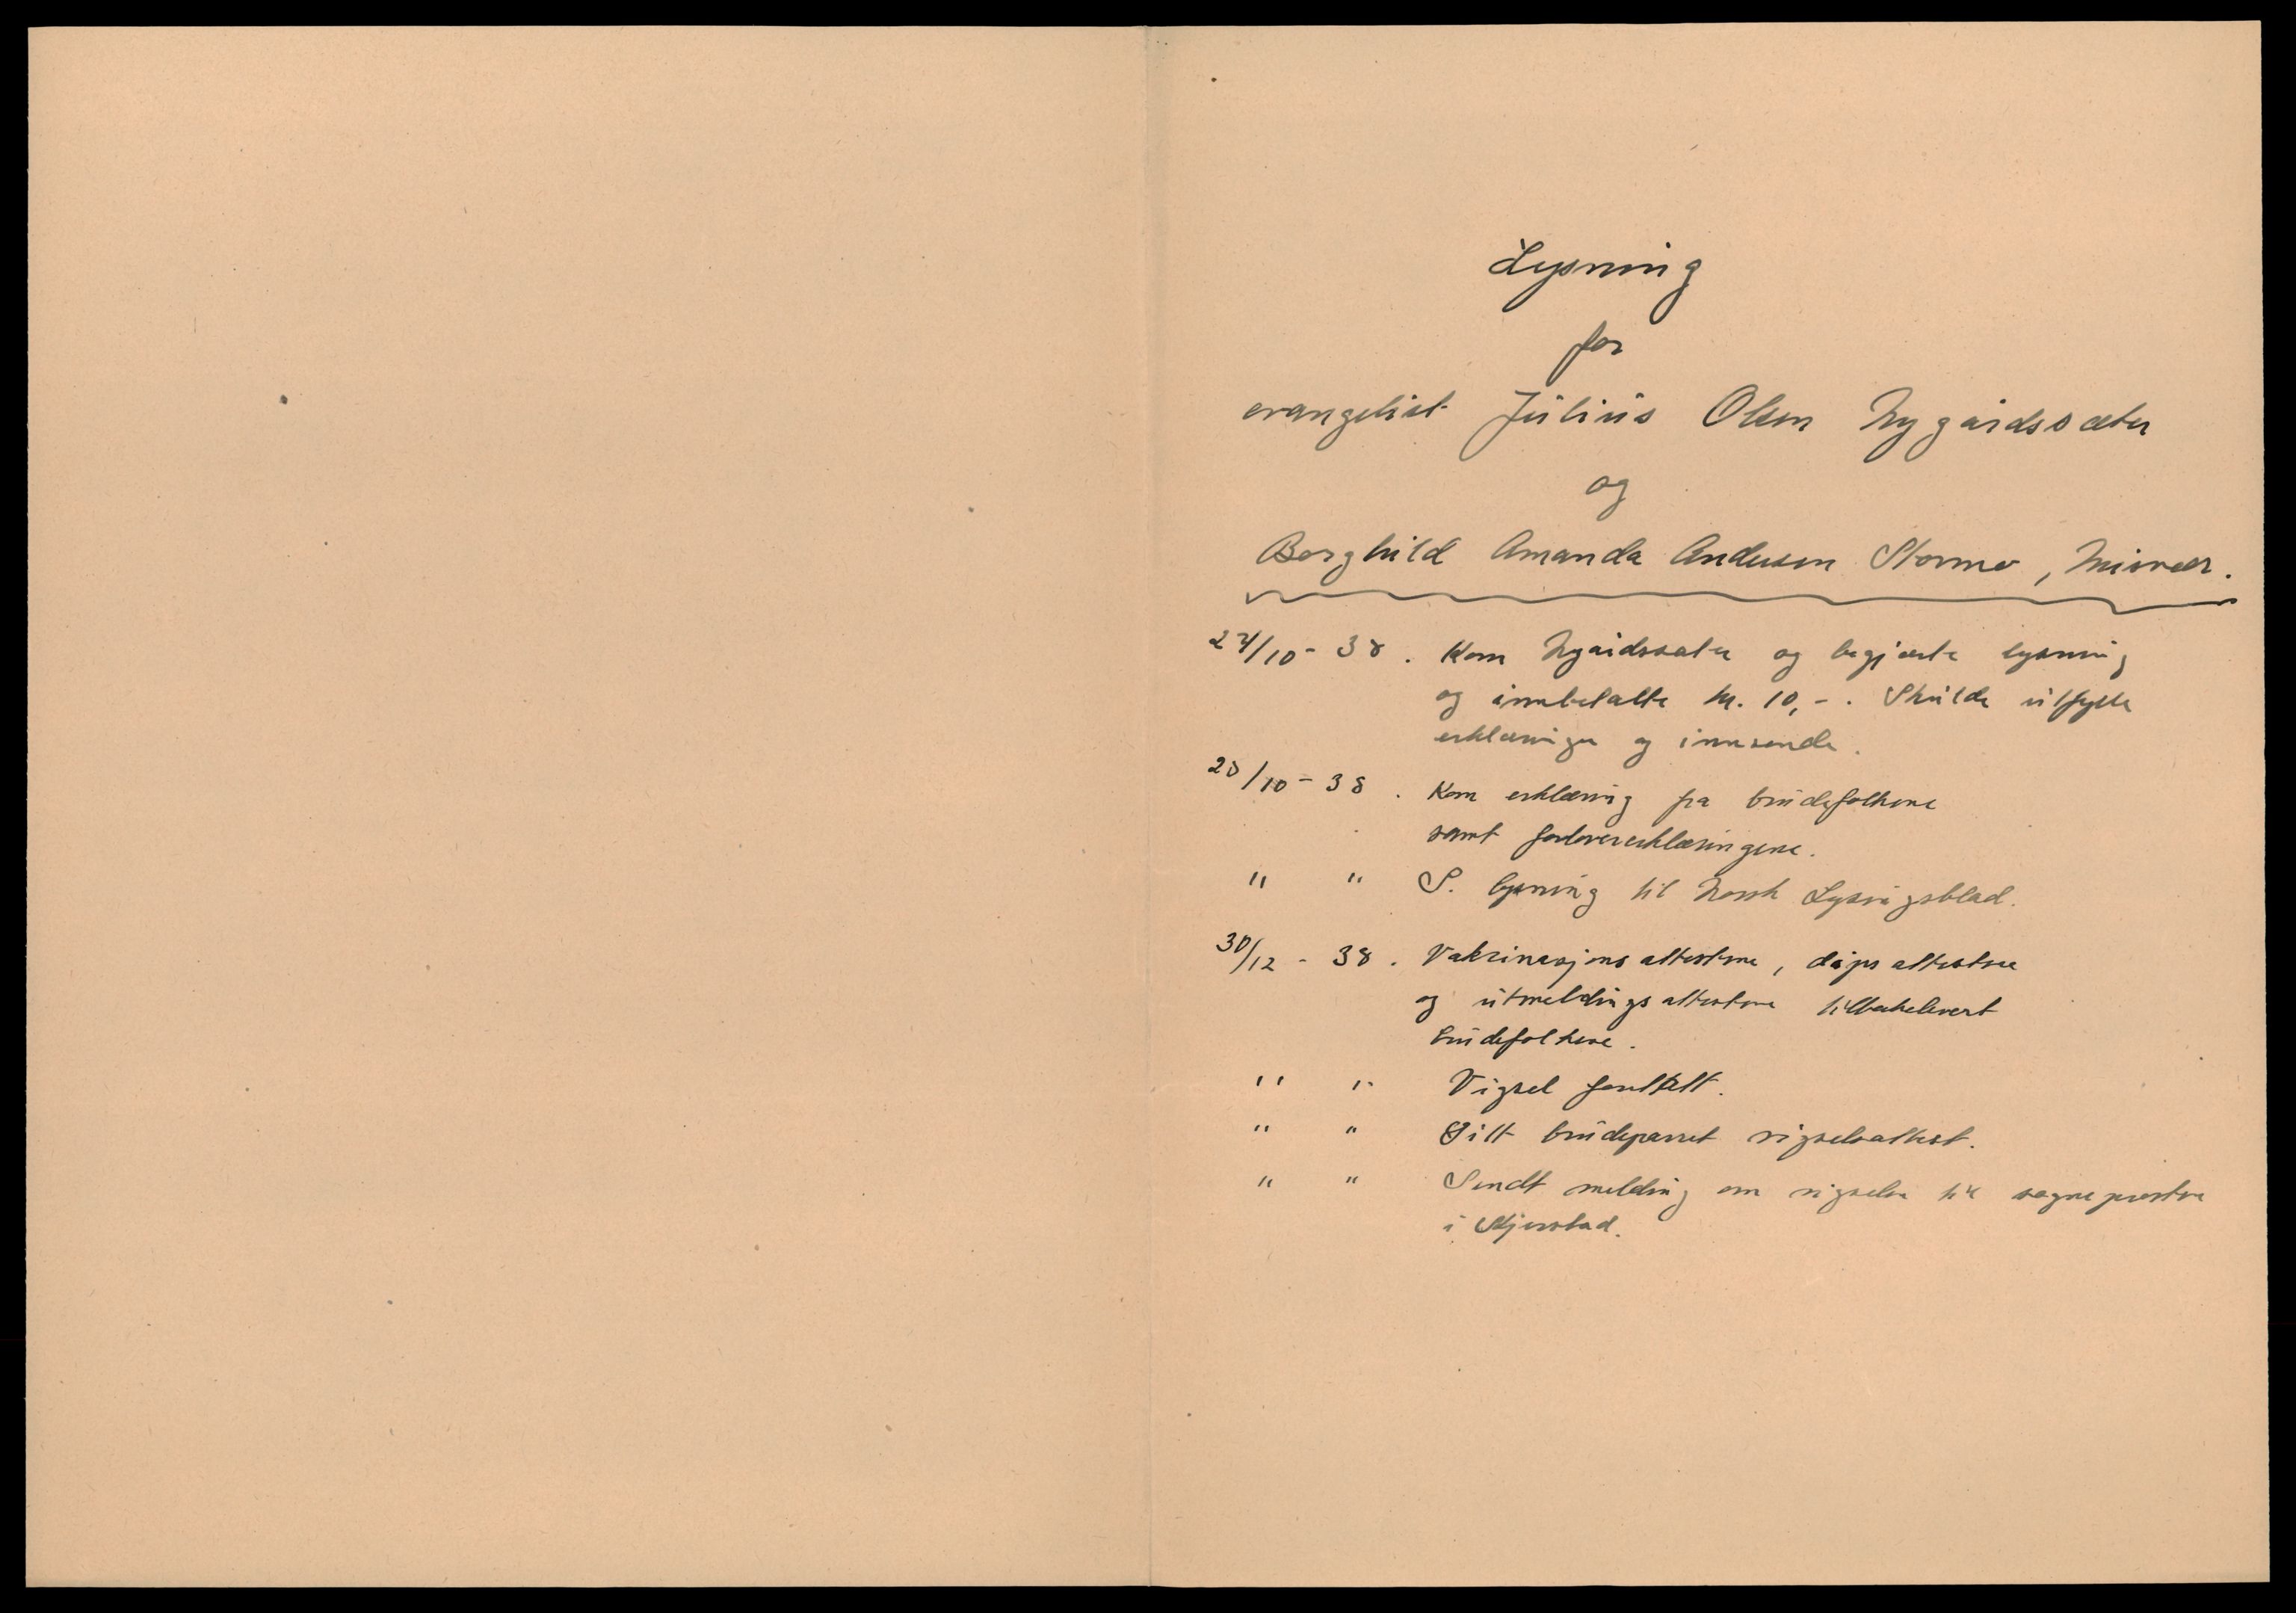 Lysning
for
evangelist Julius Olsen Nygårdssæter
og
Borghild Amanda Andersen Stormo, Misvær.
24/10 - 38. Kom Nygårdssæter og begjærte lysning
og innbetalte kr. 10,-. Skulde utfylle
erklæringer og innsende.
28/10 - 38. Kom erklæring fra brudefolkene
samt forlovererklæringene.
" " S. lysning til Norsk Lysingsblad.
30/12 - 38. Vaksinasjonsattestene, dåpsattestene
og utmeldingsattestene tilbakelevert
brudefolkene.
" " Vigsel foretatt.
" " Gitt brudeparret vigselsattest.
" " Sendt melding om vigselen til sognepresten
i Skjerstad.